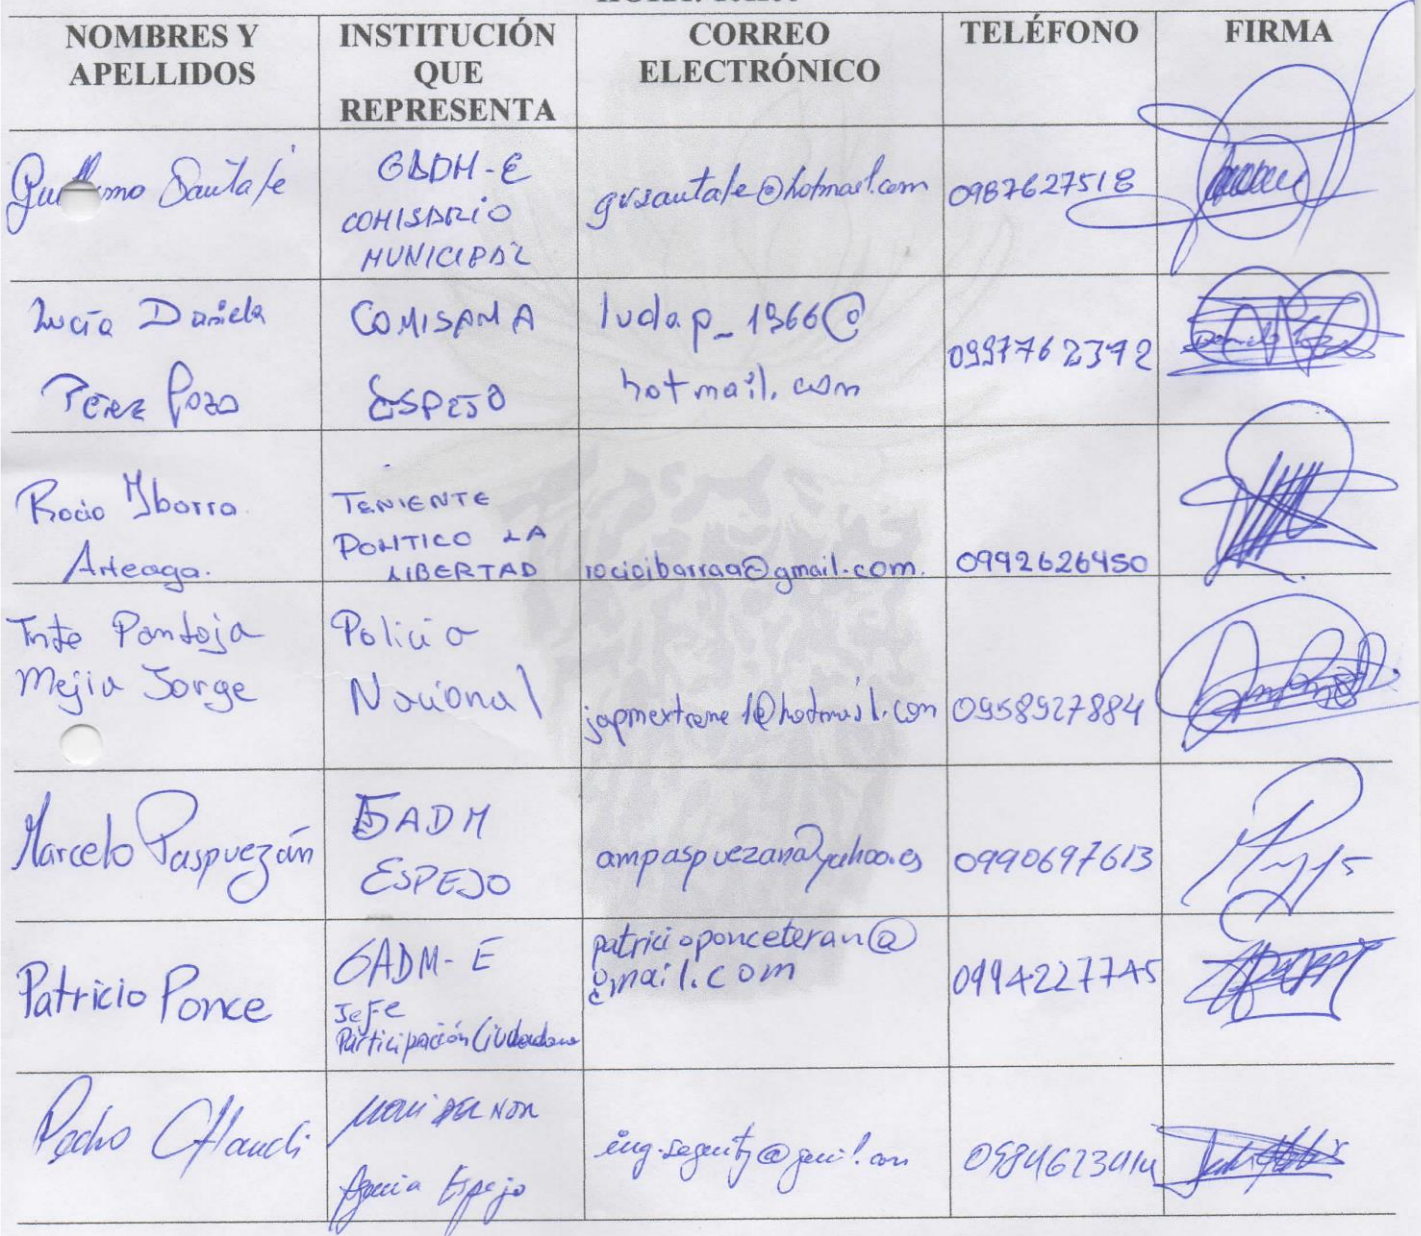 NOMBRES Y APELLIDOS
INSTITUCIÓN QUE REPRESENTA
CORREO ELECTRÓNICO
TELÉFONO
FIRMA
Santafe
GADM-E
COMISARIO
MUNICIPAL
gvsantafe@hotmail.com
0987627518
Lucía Daniela
Pérez Pozo
COMISARIA
ESPEJO
ludap_1966@
hotmail.com
0997762372
Rocio Ybarra
Arteaga.
TENIENTE
POLITICO LA
LIBERTAD
rocioibarraa@gmail.com.
0992626450
Tnte Pantoja
Mejia Jorge
Policia
Nacional
japmextreme1@hotmail.com
0958927884
Marcelo Paspuezán
GADM
ESPEJO
ampaspuezan@yahoo.es
0990697613
Patricio Ponce
GADM-E
Jefe
Participación Ciudadana
patricioponceteran@
gmail.com
0994227745
Pedro
Espejo